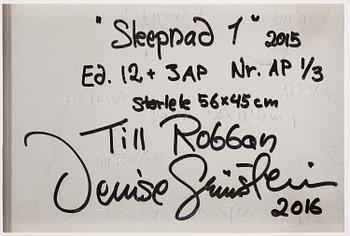 "Sleepnad 1" 2015
Ed. 12 + 3AP Nr. AP 1/3
Storlek 56x45cm
Till Robban
Denise Grünstein
2016